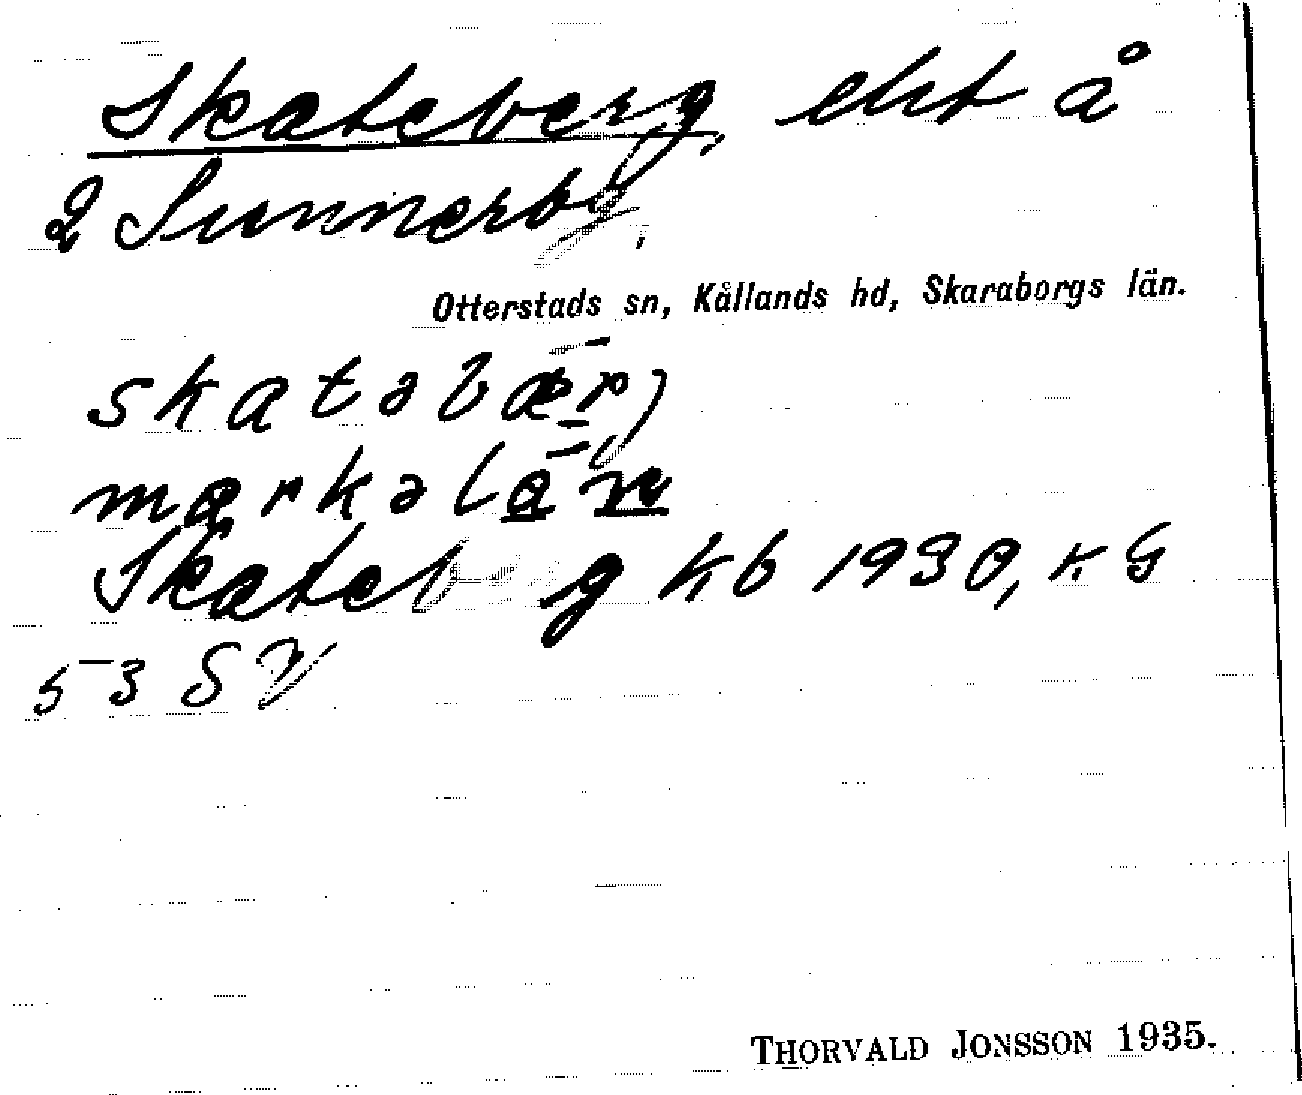 Skateberg, eht å
2 Sunnerby,
Otterstads sn, Kållands hd, Skaraborgs län.
skatəbær)
markəlän
Skateb g kb 1930, KG
53 SV
THORVALD JONSSON 1935.